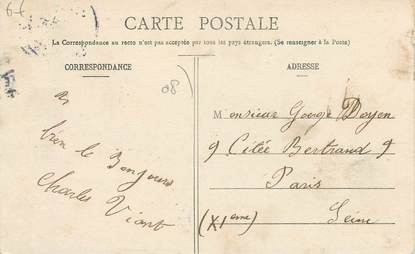 6€
CARTE POSTALE
La Correspondance au recto n'est pas acceptée par tous les pays étrangers. (Se renseigner à la Poste)
CORRESPONDANCE
bien le Bonjour
Charles Viant
08
ADRESSE
Monsieur George Doyen
9 Citée Bertrand 9
Paris
(XIeme) Seine